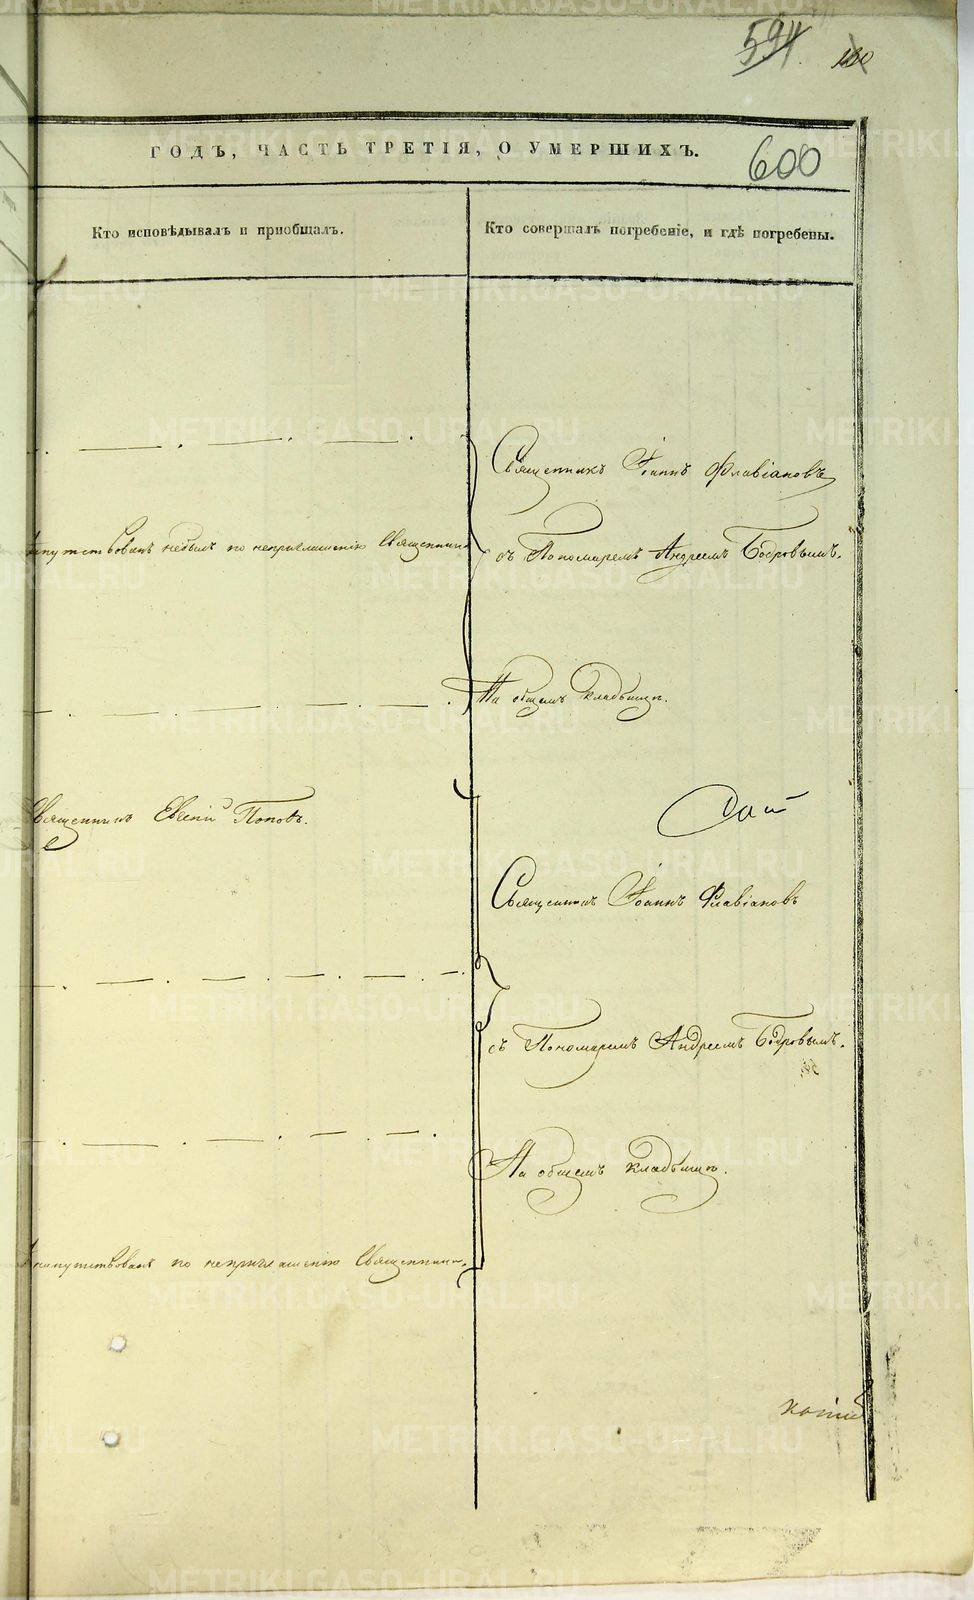 594
600
ГОДЪ, ЧАСТЬ ТРЕТІЯ, О УМЕРШИХЪ.
Кто исповѣдывалъ и пріобщалъ.
Кто совершалъ погребеніе, и гдѣ погребены.
Священникъ Іоаннъ Флавіановъ
напутствованъ небылъ по неприглашенію Священника
съ Пономаремъ Андреемъ Бодровымъ.
На общемъ кладбищѣ.
Священникъ Евсевій Поповъ.
Священникъ Іоаннъ Флавіановъ
съ Пономаремъ Андреемъ Бодровымъ.
На общемъ кладбищѣ.
напутствованъ по неприглашенію Священника.
METRIKI.GASO-URAL.RU